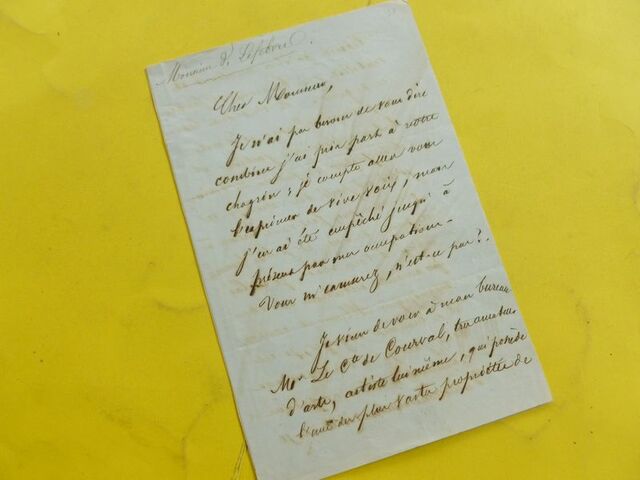 Monsieur D. Lefebvre.
Cher Monsieur,
Je n'ai pas besoin de vous dire
combien j'ai pris part à votre
chagrin ; je compte aller vous
l'exprimer de vive voix, mais
j'en ai été empêché jusqu'à
présent par mes occupations.
Vous m'excuserez, n'est-ce pas ?
Je viens de voir à mon bureau
Mr Le Cte de Courval, très amateur
d'arts, artiste lui même, qui possède
l'une des plus vastes propriétés de